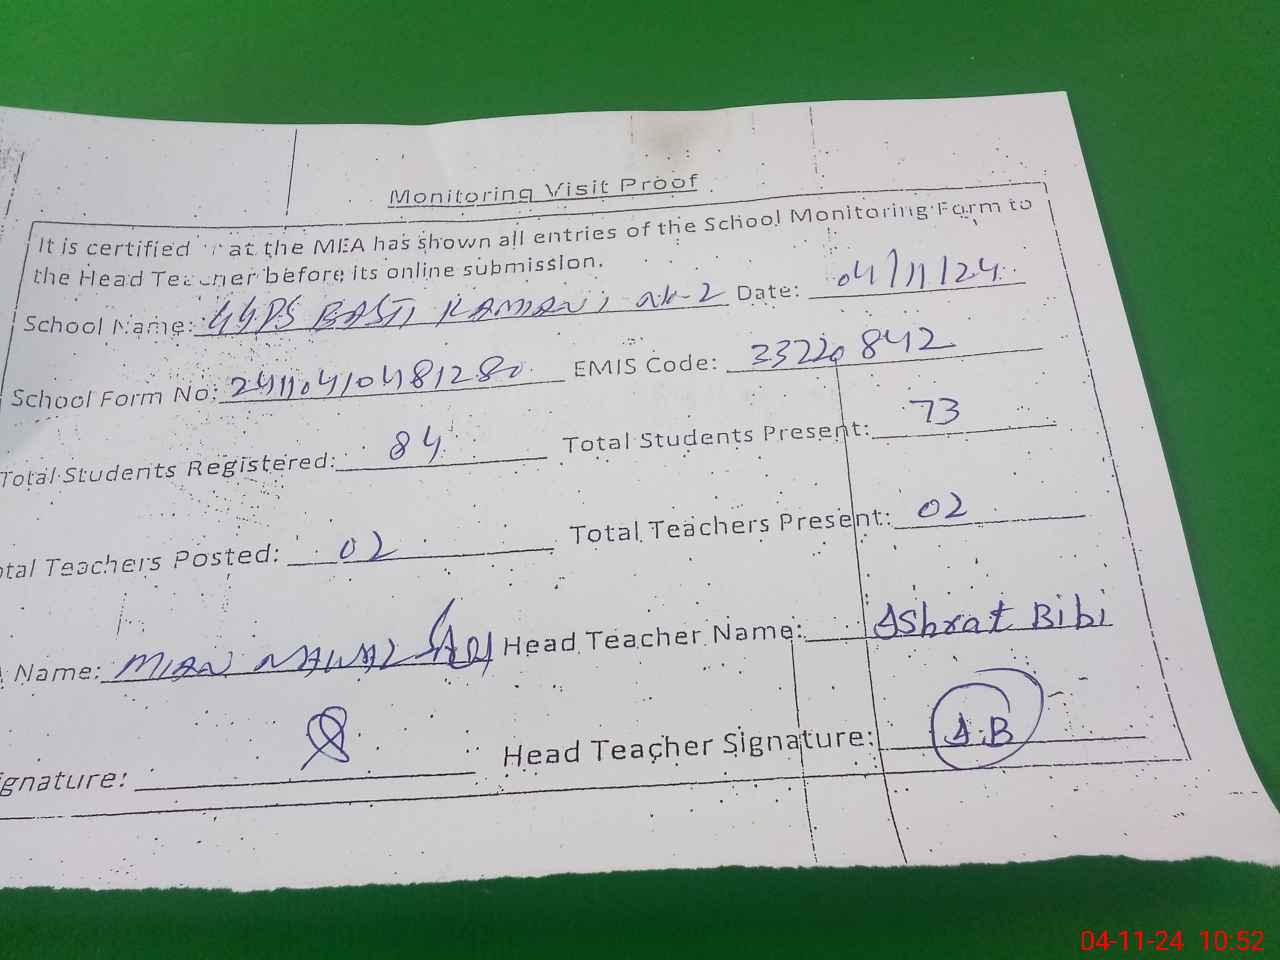 Monitoring Visit Proof
It is certified at the MEA has shown all entries of the School Monitoring Form to
the Head Teacher before its online submission.
School Name: GGPS BASTI Date: 04/11/24
School Form No: 24110410481280 EMIS Code: 33220842
Total Students Registered: 84 Total Students Present: 73
otal Teachers Posted: 02 Total Teachers Present: 02
Name: MIAN NAWAZ Head Teacher Name: Ashrat Bibi
ignature: Head Teacher Signature: A.B
04-11-24 10:52